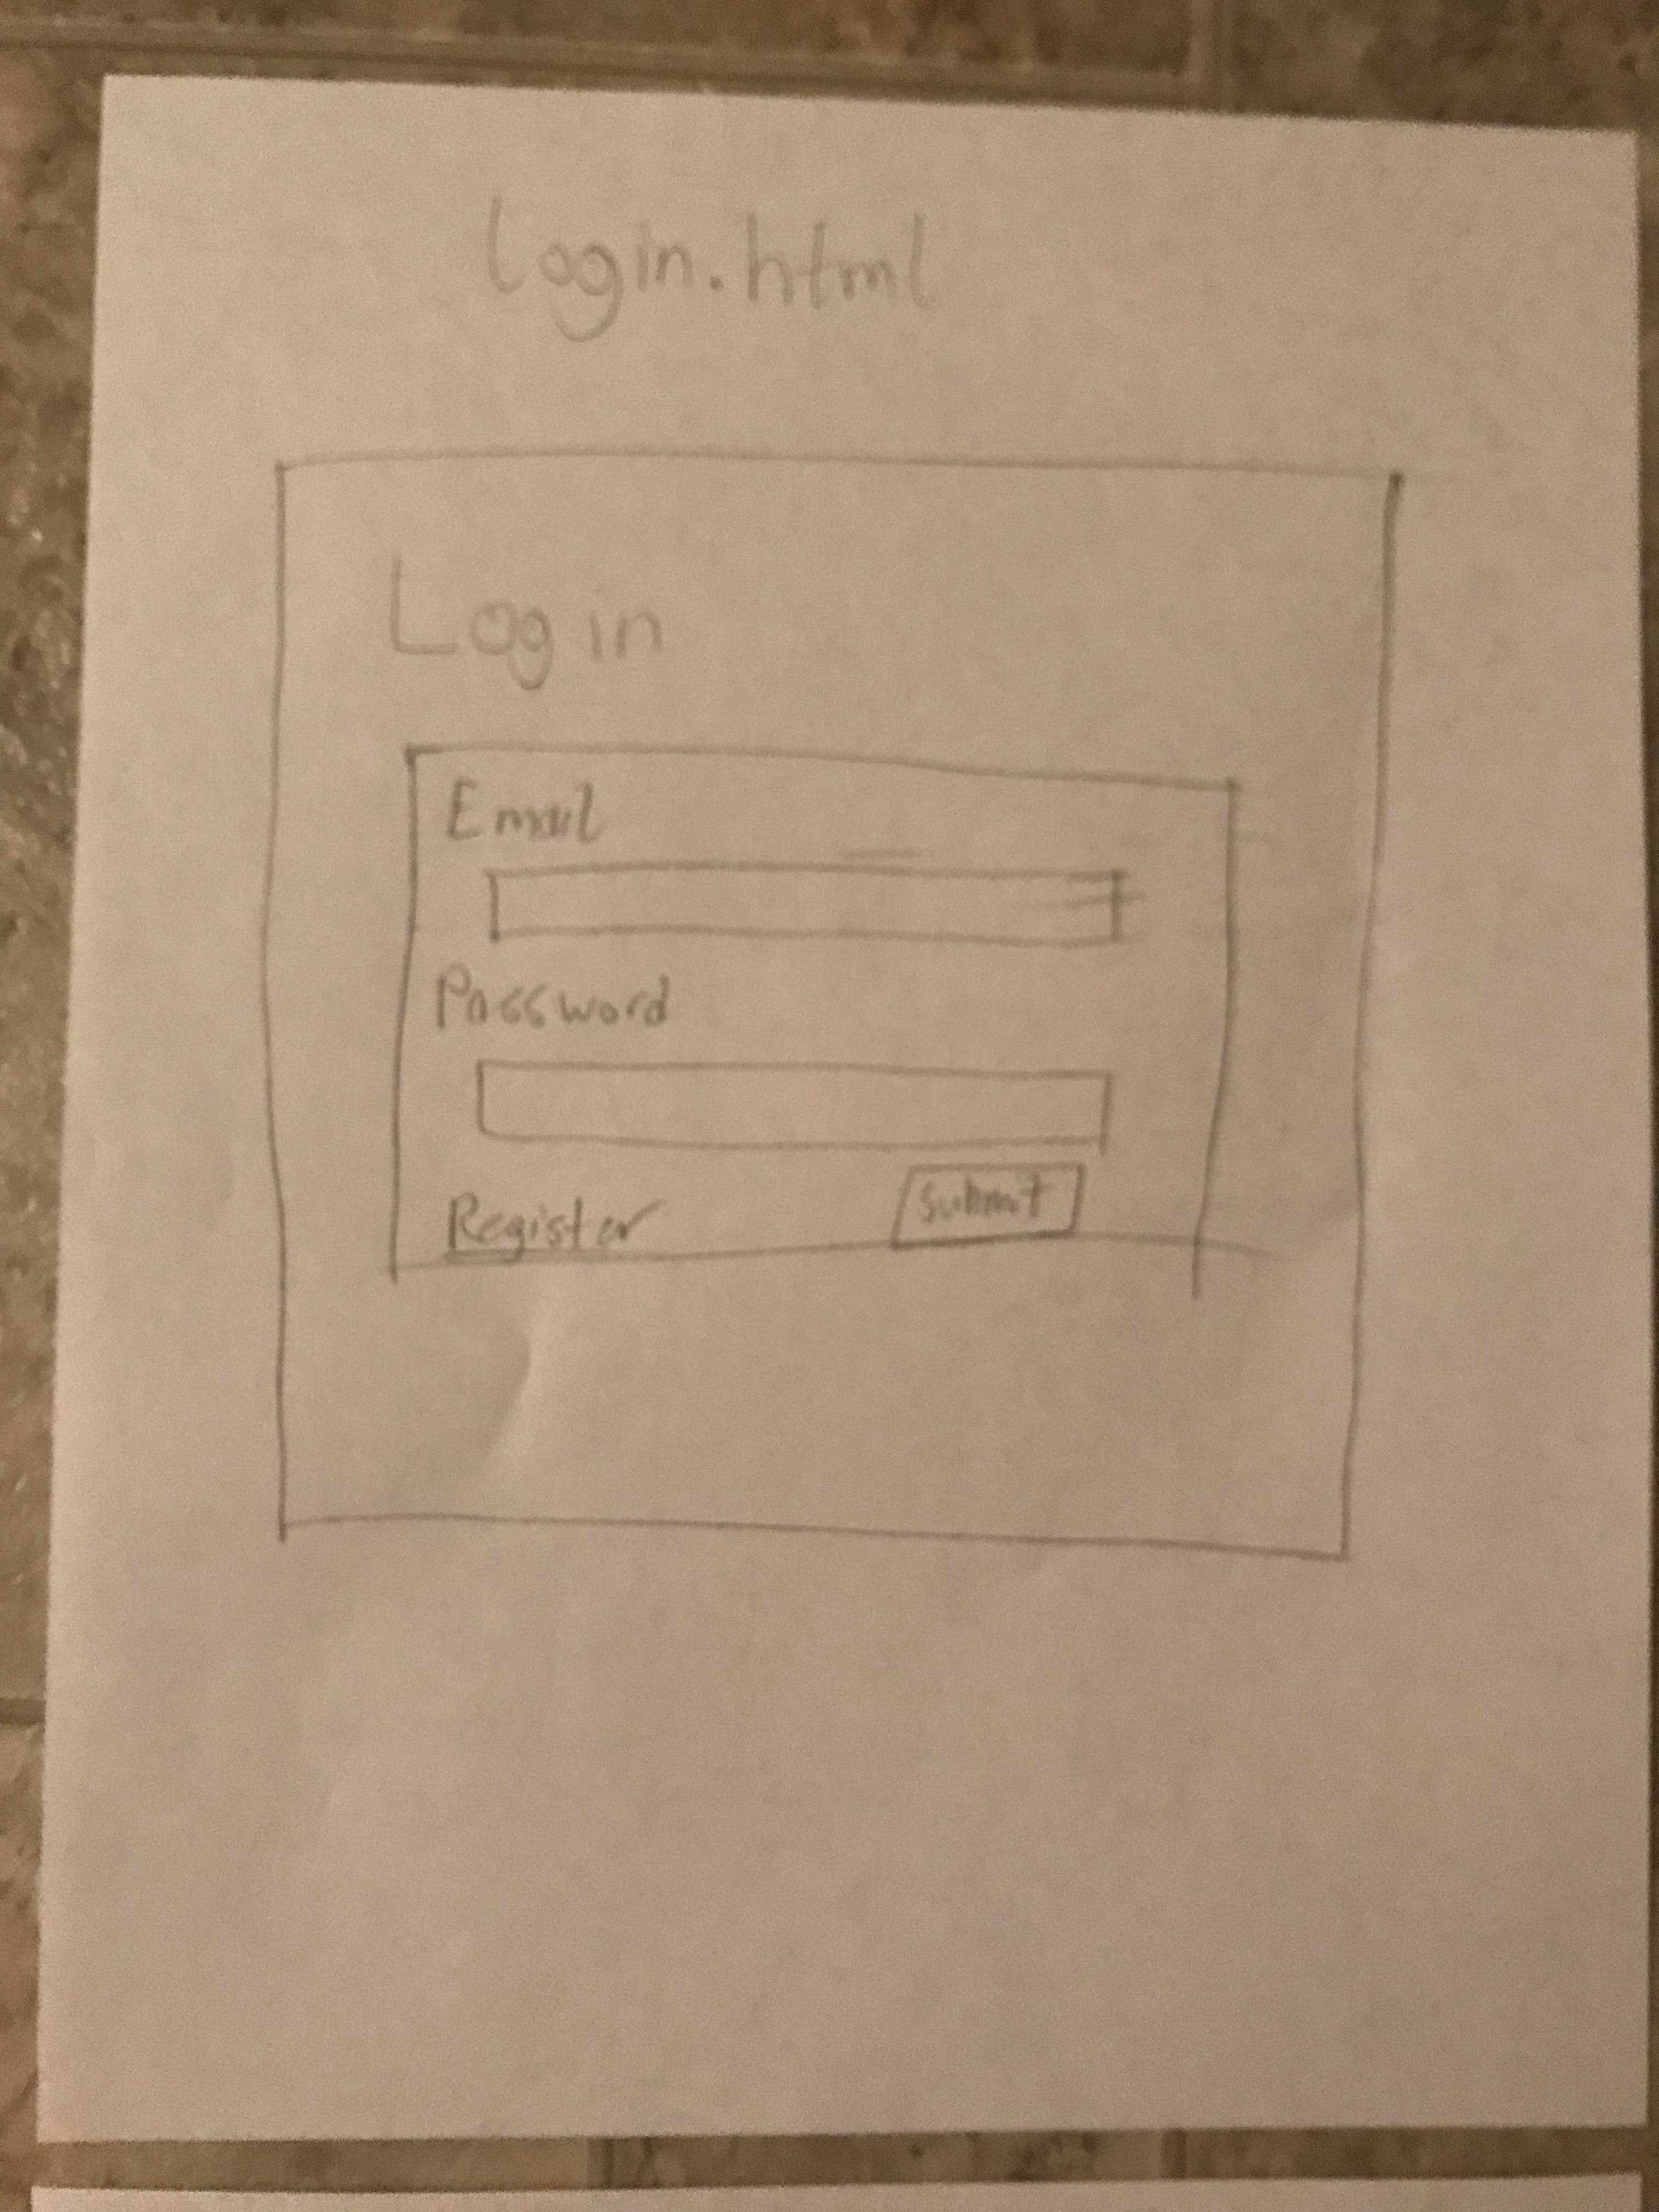 login.html
Login
Email
Password
Register Submit